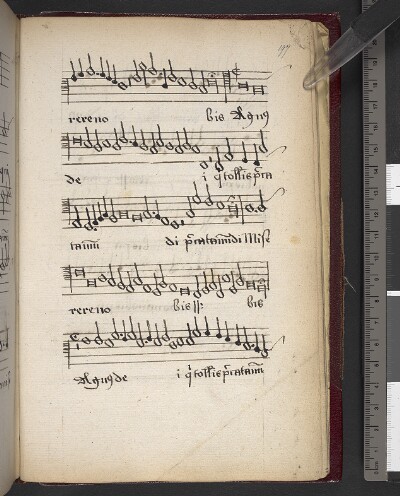 rereno bis Agnus
de i q tollis pcca
tamu di pccatamūdi Mise
rereno bis ij bis
Agnus de i q tollis pccatam